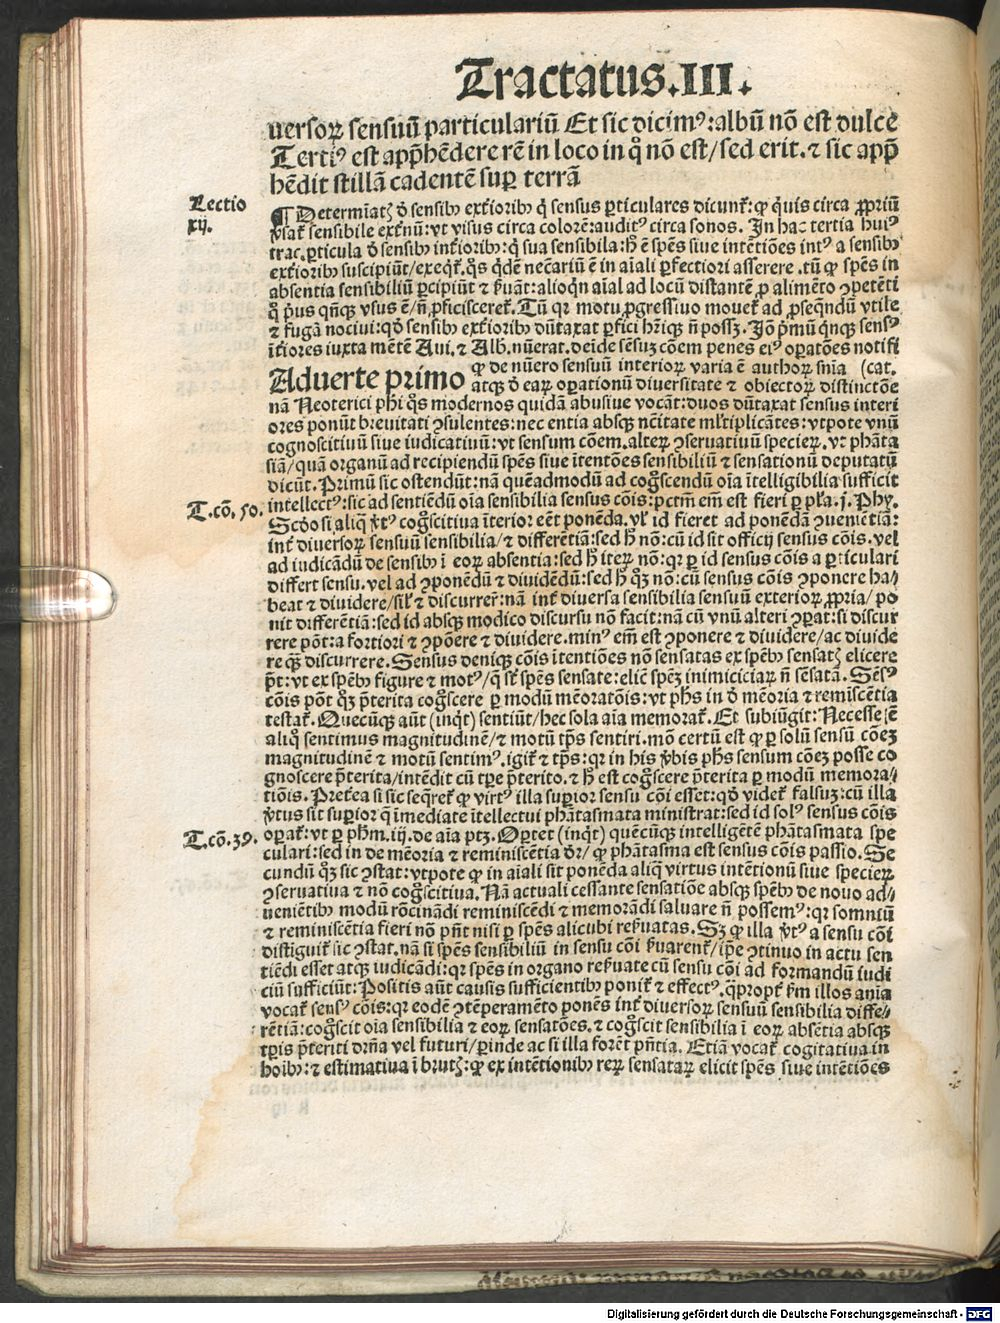 Tractatus.III.
uersoꝝ sensuū particulariū Et sic dicimꝰ:albū nō est dulce
Tertiꝰ est app̄hēdere rē in loco in q̊ nō est/sed erit.⁊ sic app̄
hēdit stillā cadentē suꝑ terrā
Lectio
xij.
¶Determīatꝭ ð sensibꝫ ext̄ioribꝫ q̄ sensus ꝑticulares dicunt̄:ꝙ q̄uis circa ꝓpriū
sensibile ext̄nū:vt visus circa colorē:auditꝰ circa sonos. In hac tertia huiꝰ
trac.ꝑticula ð sensibꝫ int̄ioribꝫ:q̄ sua sensibila:ħ ē spēs siue intētiōes intꝰ a sensibꝫ
ext̄ioribꝫ suscipiūt/exeq̄t̄.q̊s q̇dē nec̄ariū ē in aīali ꝑfectiori asserere.tū ꝙ spēs in
absentia sensibiliū ꝑcipiūt ⁊ ẜuāt:alioq̇n aīal ad locū distantē ꝓ alimēto ꝯpetēti
q̊ p̄us qn̄qꝫ vsus ē/n̄ ꝓficisceret̄.Tū qꝛ motu ꝓgressiuo mouet̄ ad ꝓseq̄ndū vtile
⁊ fugā nociui:qð sensibꝫ ext̄ioribꝫ dūtaxat ꝑfici hīqꝫ n̄ possꝫ. Jō p̄mū q̇nqꝫ sensꝰ
īt̄iores iuxta mētē Aui.⁊ Alb.nūerat.deīde sēsuꝫ cōem penes eiꝰ oꝑatōes notifi
ꝙ de nūero sensuū interioꝝ varia ē authoꝝ snīa (cat.
Aduerte primo atqꝫ ð eaꝝ oꝑationū diuersitate ⁊ obiectoꝝ distinctōe
nā Neoterici pħi q̊s modernos quidā abusiue vocāt:duos dūtaxat sensus interi
ores ponūt breuitati ꝯsulentes:nec entia absqꝫ ncītate ml̄tiplicātes:vtpote vnū
cognoscitiuū siue iudicatiuū:vt sensum cōem.alteꝝ ꝯseruatiuū specieꝝ.vt phāta
siā/quā organū ad recipiendū spēs siue ītentōes sensibiliū ⁊ sensationū deputatū
dicūt.Primū sic ostendūt:nā quēadmodū ad cog̊scendū oīa ītelligibilia sufficit
T.cō.50. intellectꝰ:sic ad sentiēdū oīa sensibilia sensus cōis:pctm̄ em̄ est fieri ꝑ pl̄a.j.Phy.
Scd̄o si aliq̄ v̄tꝰ cog̊scitiua īterior eēt ponēda.vl̓ id fieret ad ponēdā ꝯueniētiā:
int̄ diuersoꝝ sensuū sensibilia/⁊ differētiā:sed ħ nō:cū id sit officij sensus cōis.vel
ad iudicādū de sensibꝫ ī eoꝝ absentia:sed ħ iteꝝ nō:qꝛ ꝑ id sensus cōis a ꝑticulari
differt sensu.vel ad ꝯponēdū ⁊ diuidēdū:sed ħ q̊ꝫ nō:cū sensus cōis ꝯponere ha/
beat ⁊ diuidere/sil̓ ⁊ discurrer̄:nā int̄ diuersa sensibilia sensuū exterioꝝ ꝓpria/po
nit differētiā:sed id absqꝫ modico discursu nō facit:nā cū vnū alteri ꝯꝑat:si discur
rere pōt:a fortiori ⁊ ꝯpōere ⁊ diuidere.minꝰ em̄ est ꝯponere ⁊ diuidere/ac diuide
re qꝫ discurrere.Sensus deniqꝫ cōis ītentiōes nō sensatas ex spēbꝫ sensatꝭ elicere
p̄t:vt ex spēbꝫ figure ⁊ motꝰ/q̄ sīt spēs sensate:elic̄ spēꝫ inimiciciaꝝ n̄ sēsatā.Sēsꝰ
cōis pōt q̊ꝫ p̄terita cog̊scere ꝑ modū mēoratōis:vt pħs in ð mēoria ⁊ remīscētia
testat̄.Quecūqꝫ aūt (inq̇t) sentiūt/hec sola aīa memorāt.Et subiūgit:Necesse ē
aliq̊ sentimus magnitudinē/⁊ motū tp̄s sentiri.mō certū est ꝙ ꝑ solū sensū cōeꝫ
magnitudinē ⁊ motū sentimꝰ.igit̄ ⁊ tp̄s:qꝛ in his v̄bis pħs sensum cōeꝫ posse co
gnoscere p̄terita/intēdit cū tꝑe p̄terito.⁊ ħ est cog̊scere p̄terita ꝑ modū memora/
tiōis.Pret̄ea si sic seq̄ret̄ ꝙ virtꝰ illa suꝑior sensu cōi esset:qð videt̄ falsuꝫ:cū illa
v̄tus sit suꝑior q̄ īmediate ītellectui phātasmata ministrat:sed id solꝰ sensus cōis
T.cō.39. oꝑat̄:vt ꝑ pħm.iij.de aīa ptꝫ.Oꝑtet (inq̇t) quēcūqꝫ intelligētē phātasmata spe
culari:sed in de mēoria ⁊ reminiscētia dr̄/ꝙ phātasma est sensus cōis passio.Se
cundū q̊ꝫ sic ꝯstat:vtpote ꝙ in aīali sit ponēda aliq̄ virtus intētionū siue specieꝝ
ꝯseruatiua ⁊ nō cog̊scitiua.Nā actuali cessante sensatiōe absqꝫ spēbꝫ de nouo ad/
ueniētibꝫ modū rōcinādi reminiscēdi ⁊ memorādi saluare n̄ possemꝰ:qꝛ somniū
⁊ reminiscētia fieri nō pn̄t nisi ꝑ spēs alicubi reẜuatas.Sꝫ ꝙ illa v̄tꝰ a sensu cōi
distīguit̄ sic ꝯstat.nā si spēs sensibiliū in sensu cōi ẜuarent̄/ip̄e ꝯtinuo in actu sen
tiēdi esset atqꝫ iudicādi:qꝛ spēs in organo reẜuate cū sensu cōi ad formandū iudi
ciū sufficiūt:Positis aūt causis sufficientibꝫ ponit̄ ⁊ effectꝰ.q̄propt̄ ẜm illos anīa
vocat̄ sensꝰ cōis:qꝛ eodē ꝯtēperamēto ponēs int̄ diuersoꝝ sensuū sensibilia diffe/
rētiā:cog̊scit oīa sensibilia ⁊ eoꝝ sensatōes.⁊ cog̊scit sensibilia ī eoꝝ absētia absqꝫ
tꝑis p̄teriti dr̄nā vel futuri/ꝑinde ac si illa forēt pn̄tia.Etiā vocat̄ cogitatiua in
hoībꝫ:⁊ estimatiua ī brutꝭ:ꝙ ex intētionibꝫ reꝝ sensataꝝ elicit spēs siue intētiōes
Digitalisierung gefördert durch die Deutsche Forschungsgemeinschaft - DFG